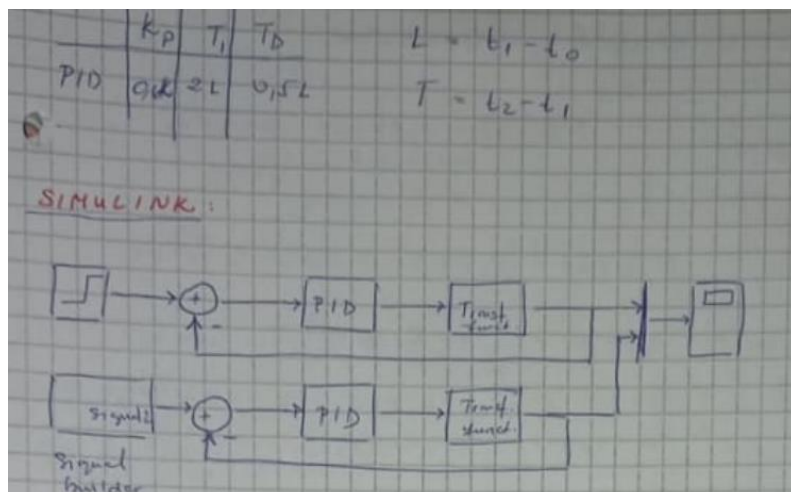 Kp Ti TD
PID 2L 0,5L
L = t1 - t0
T = t2 - t1
SIMULINK:
+ PID Transf. funct.
-
Signal 1 + PID Transf. funct.
-
Signal builder